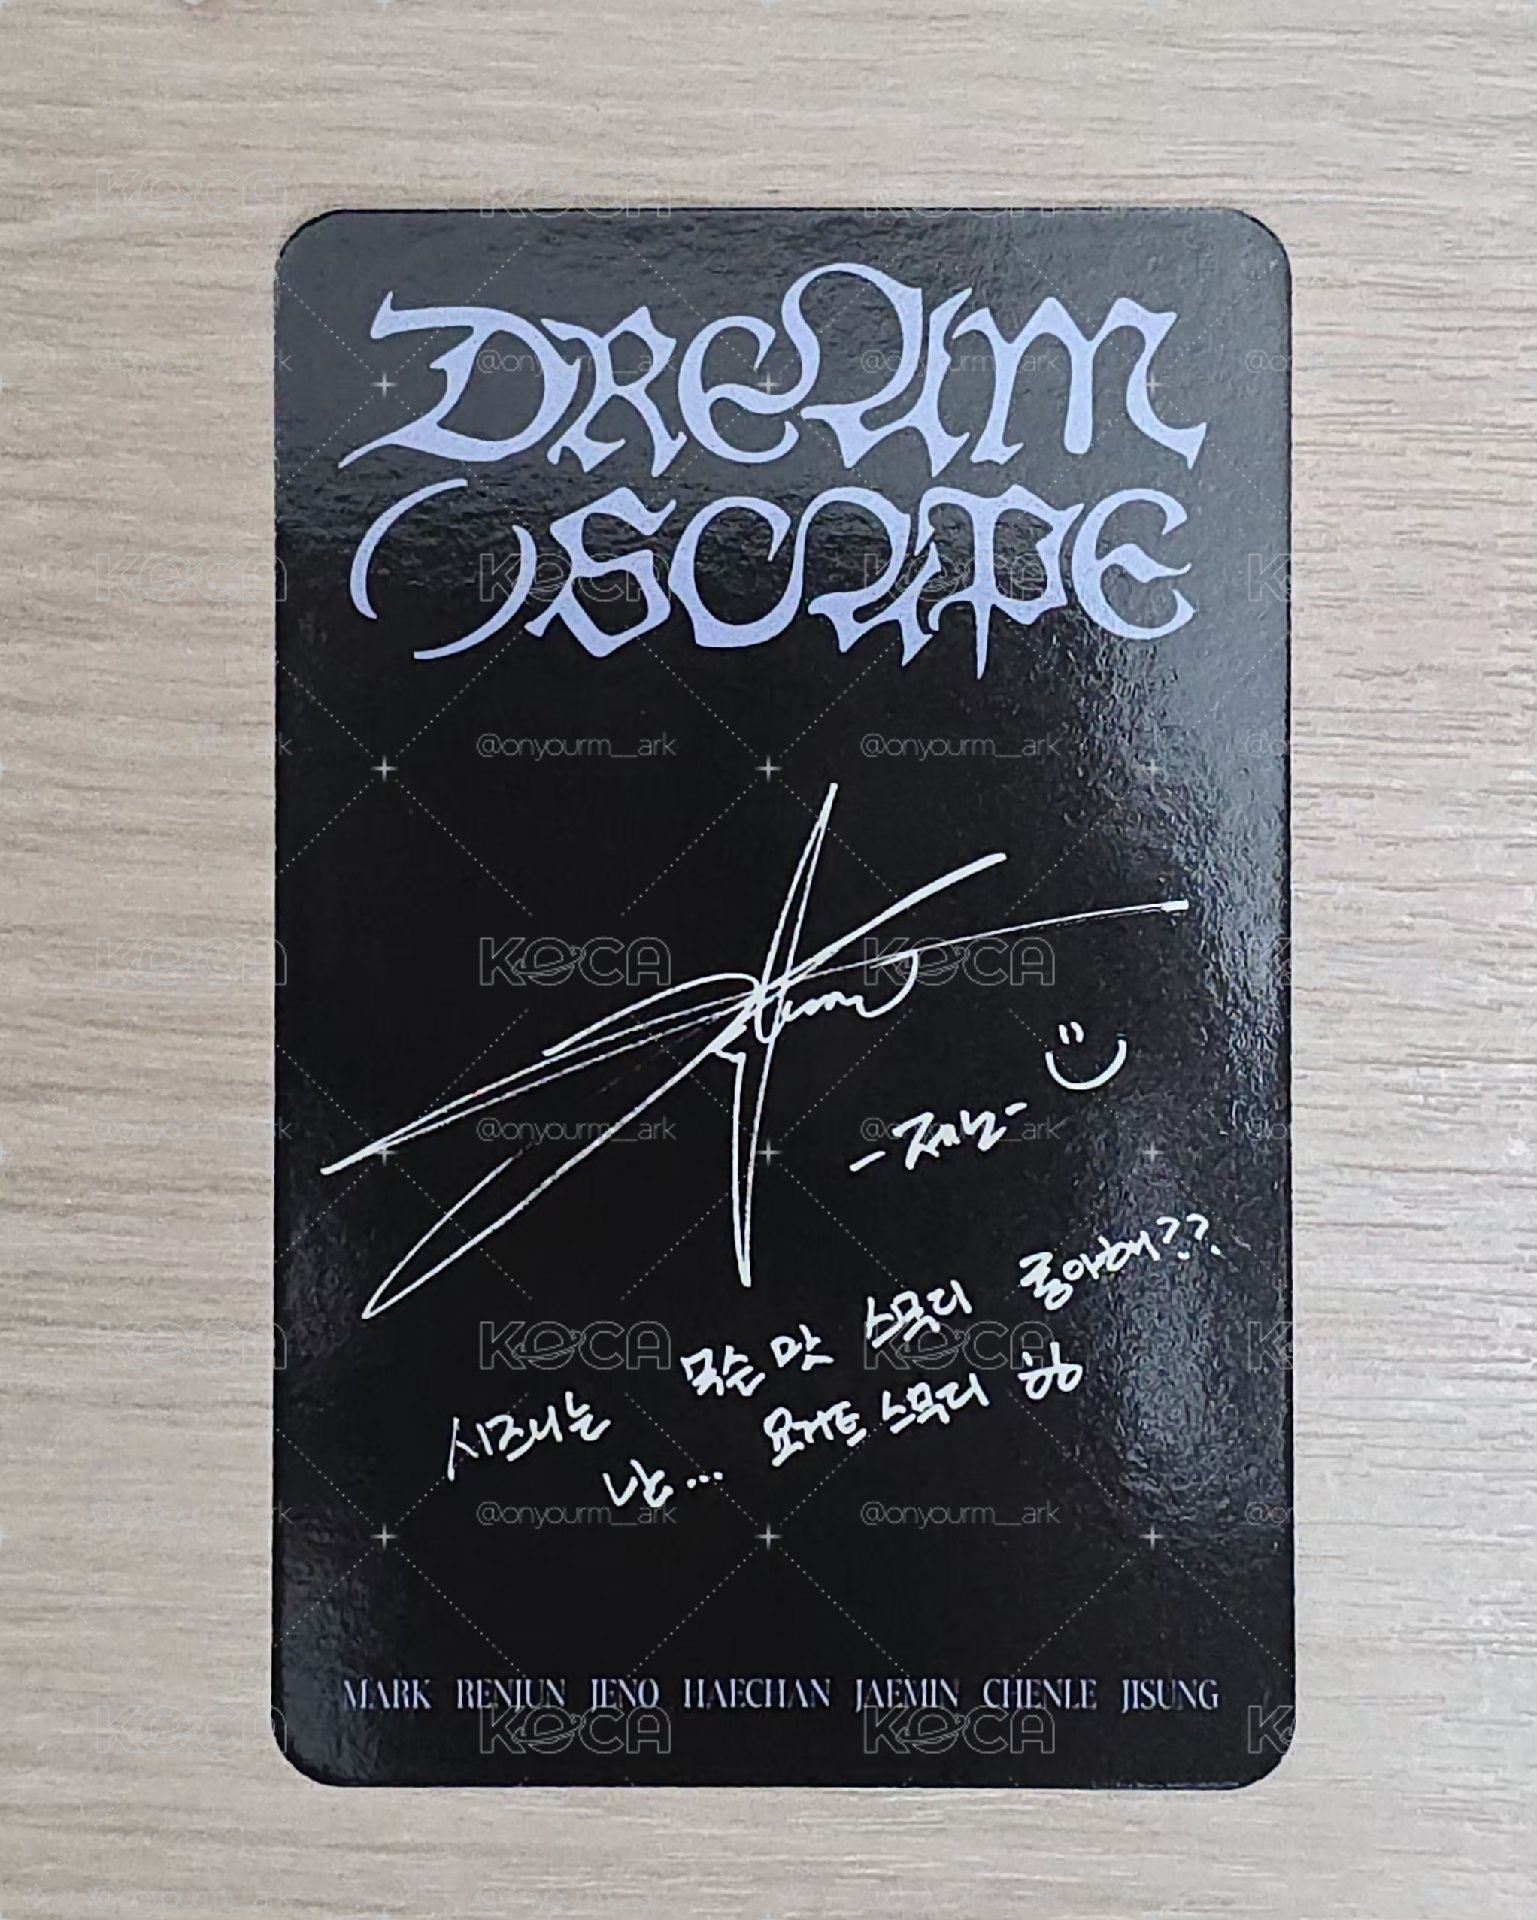 DREAM
()SCAPE
-제노-
시즈니는 무슨 맛 스무디 좋아해??
난... 요거트 스무디
MARK RENJUN JENO HAECHAN JAEMIN CHENLE JISUNG
KOCA
@onyourm__ark